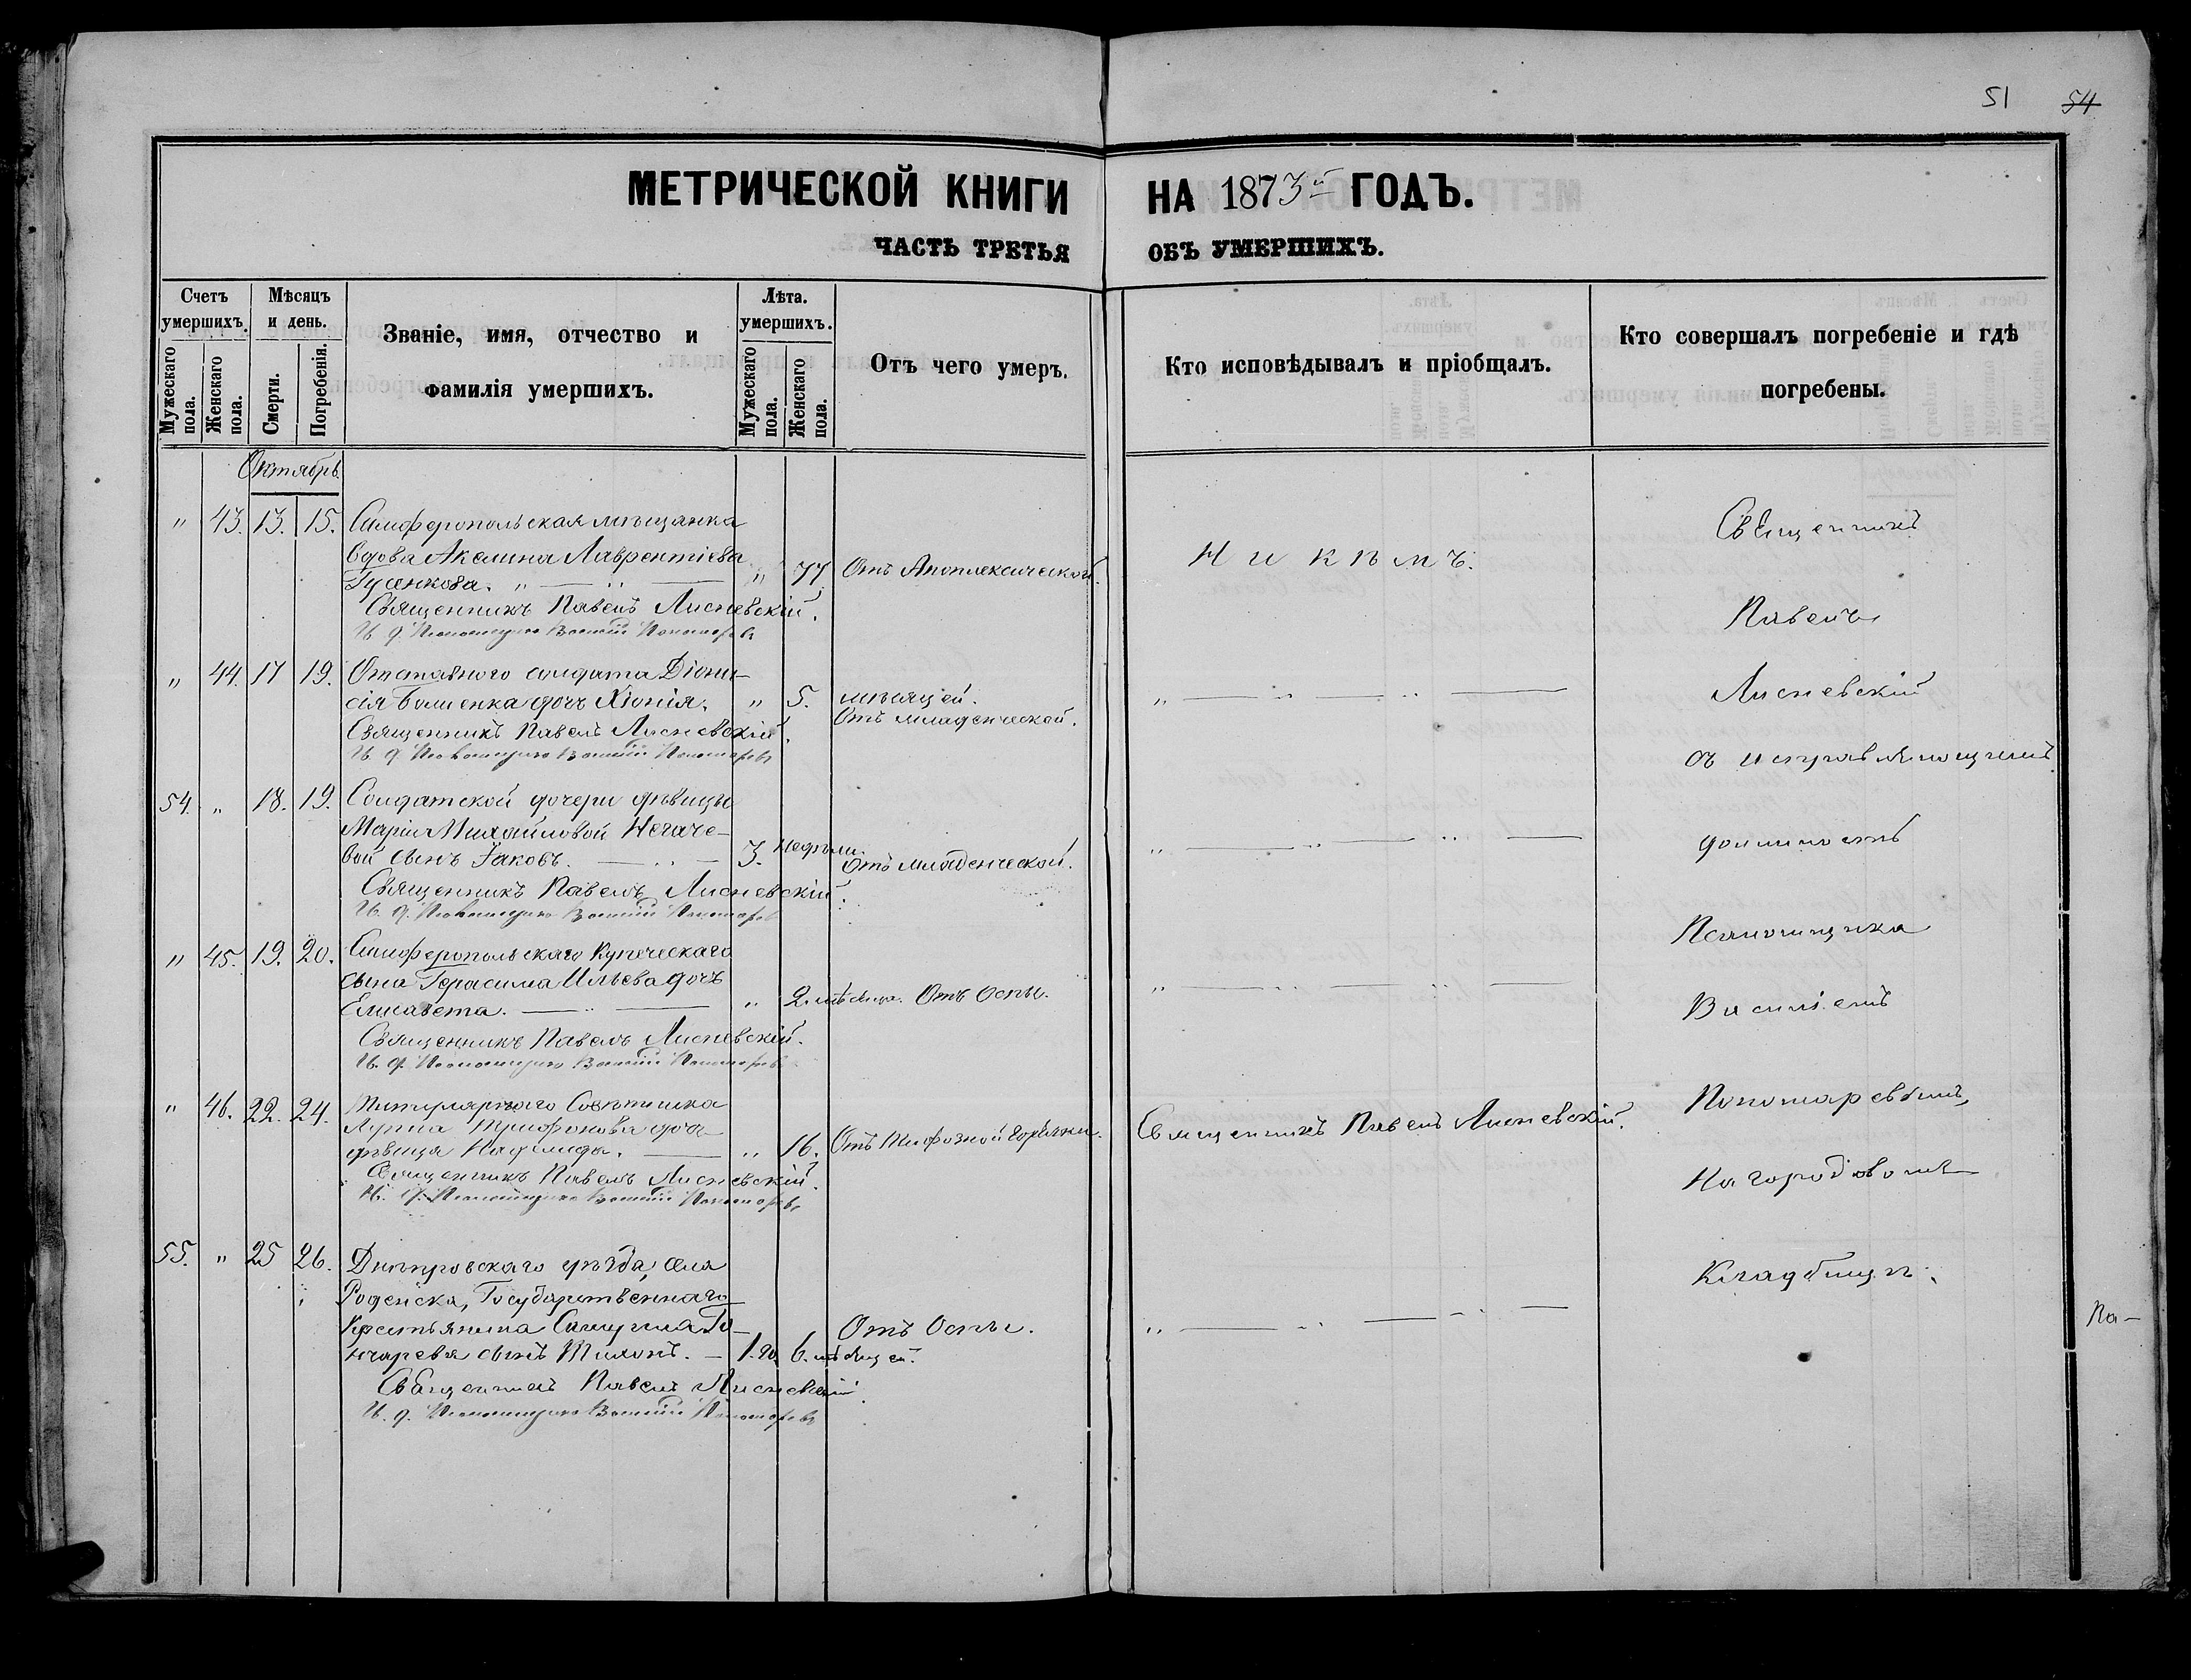 51 54
МЕТРИЧЕСКОЙ КНИГИ НА 1873й ГОДЪ.
ЧАСТЬ ТРЕТЬЯ ОБЪ УМЕРШИХЪ.
Счетъ умершихъ.
Мужескаго пола.
Женскаго пола.
Мѣсяцъ и день.
Смерти.
Погребенія.
Званіе, имя, отчество и
фамилія умершихъ.
Лѣта. умершихъ.
Мужескаго пола.
Женскаго пола.
Отъ чего умеръ.
Кто исповѣдывалъ и пріобщалъ.
Кто совершалъ погребеніе и гдѣ
погребены.
Октябрь
" 43. 13. 15. Симферопольская мѣщанка
Вдова Акелина Лаврентіева
Гусенкова. " 77 Отъ Апоплексической.
Никѣмъ.
Священникъ Павелъ Лисневскій.
И. д. Псаломщика Василій Пономаревъ
" 44. 17 19. Отставного солдата Діони-
сія дочь Хіонія. " 5. мѣсяцей.
Отъ младенческой.
Священникъ Павелъ Лисневскій.
И. д. Псаломщика Василій Пономаревъ
54. " 18. 19. Солдатской дочери дѣвицы
Маріи Михайловой Негаче-
вой сынъ Іаковъ. 3. недѣли.
Отъ младенческой.
Священникъ Павелъ Лисневскій.
И. д. Псаломщика Василій Пономаревъ
" 45. 19. 20. Симферопольскаго Купеческаго
сына Герасима Ильева дочь
Елисавета. " 2. мѣсяца. Отъ Оспы.
Священникъ Павелъ Лисневскій.
И. д. Псаломщика Василій Пономаревъ
" 46. 22. 24. Титулярнаго Совѣтника
Трифонова дочь
дѣвица " 16. Отъ Тифозной горячки.
Священникъ Павелъ Лисневскій.
Священникъ Павелъ Лисневскій.
И. д. Псаломщика Василій Пономаревъ
55. " 25 26. Днѣпровскаго уѣзда, села
Роденска, Государственнаго
Крестьянина Самуила Го-
нчарева сынъ Тихонъ. 1. го. 6. мѣсяцей.
Отъ Оспы.
Священникъ Павелъ Лисневскій
И. д. Псаломщика Василій Пономаревъ
Священникъ
Павелъ
Лисневскій
съ исправляющимъ
должность
Псаломщика
Василіемъ
Пономаревымъ,
На городовомъ
Кладбищѣ.
Па-